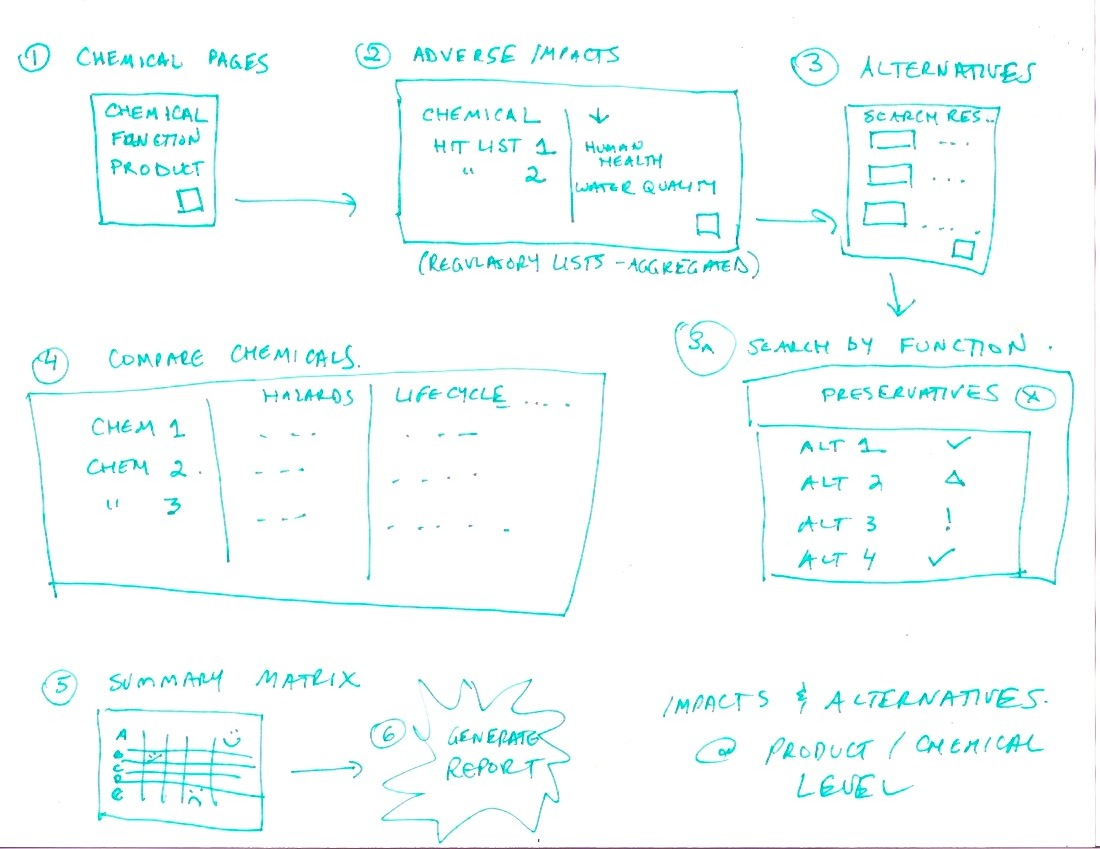 1 CHEMICAL PAGES
CHEMICAL
FUNCTION
PRODUCT
2 ADVERSE IMPACTS
CHEMICAL ↓
HIT LIST 1 HUMAN
HEALTH
" 2 WATER QUALITY
(REGULATORY LISTS - AGGREGATED)
3 ALTERNATIVES
SEARCH RES..
3A SEARCH BY FUNCTION.
PRESERVATIVES
ALT 1 ✓
ALT 2 △
ALT 3 !
ALT 4 ✓
4 COMPARE CHEMICALS.
HAZARDS LIFECYCLE ....
CHEM 1
CHEM 2.
" 3
5 SUMMARY MATRIX
A
B
C
D
E
6 GENERATE
REPORT
IMPACTS & ALTERNATIVES.
@ PRODUCT / CHEMICAL
LEVEL